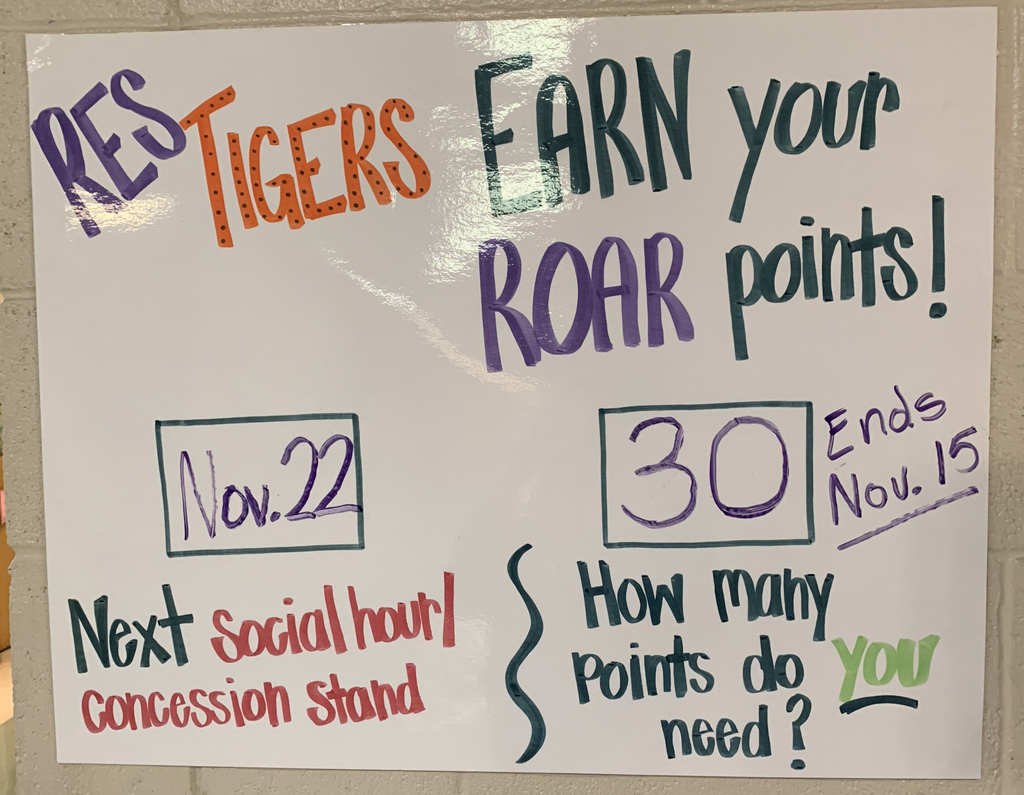 RES TIGERS EARN your
ROAR points!
Nov. 22
Next social hour/
concession stand
30
Ends
Nov. 15
How many
points do you
need?